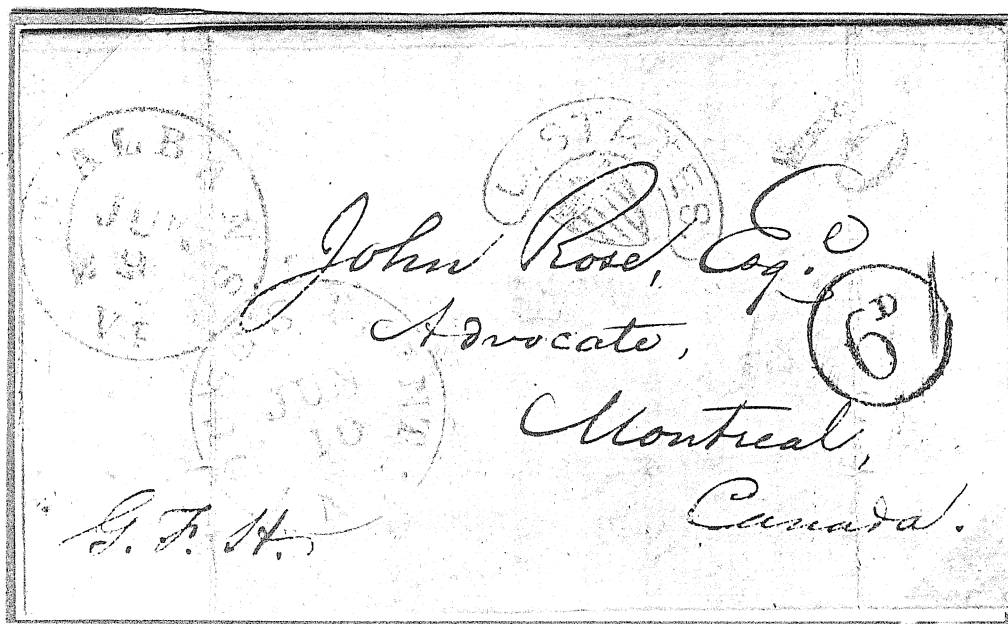 ALBANS
JUN
VT
U. STATES
10
John Rose, Esqe
Advocate,
Montreal,
Canada.
6d
JUN
10
G. F. H.